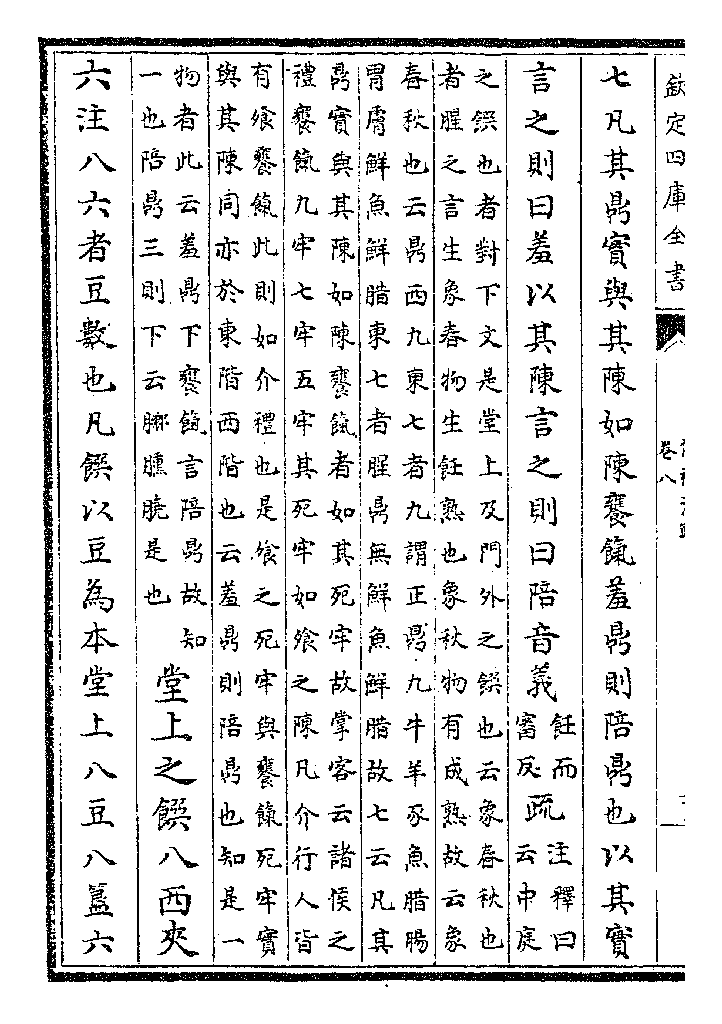 欽定四庫全書
卷八
七凡其鼎實與其陳如陳饔餼羞鼎則陪鼎也以其實
言之則曰羞以其陳言之則曰陪音義飪而審反疏注釋曰云中庭
之饌也者對下文是堂上及門外之饌也云象春秋也
者腥之言生象春物生飪熟也象秋物有成熟故云象
春秋也云鼎西九東七者九謂正鼎九牛羊豕魚腊腸
胃膚鮮魚鮮腊東七者腥鼎無鮮魚鮮腊故七云凡其
鼎實與其陳如陳饔餼者如其死牢故掌客云諸侯之
禮饔餼九牢七牢五牢其死牢如飧之陳凡介行人皆
有飧饔餼此則如介禮也是飧之死牢與饔餼死牢實
與其陳同亦於東階西階也云羞鼎則陪鼎也知是一
物者此云羞鼎下饔餼言陪鼎故知
一也陪鼎三則下云膷臐膮是也
堂上之饌八西夾
六注八六者豆數也凡饌以豆為本堂上八豆八簋六